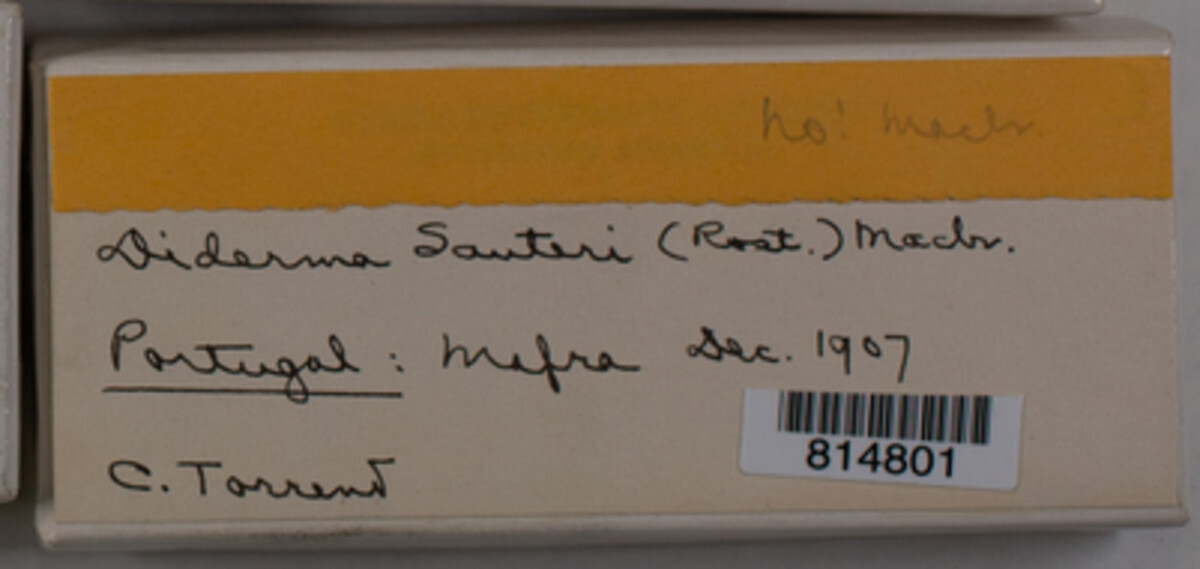 no! Macbr.
Diderma Sauteri (Rost.) Macbr.
Portugal: Mafra Dec. 1907
814801
C. Torrend